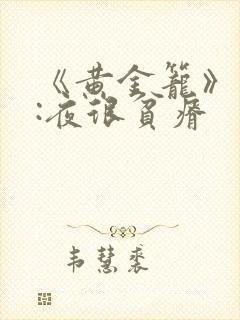 《黄金籠》
:夜很貧瘠
韦慧裘